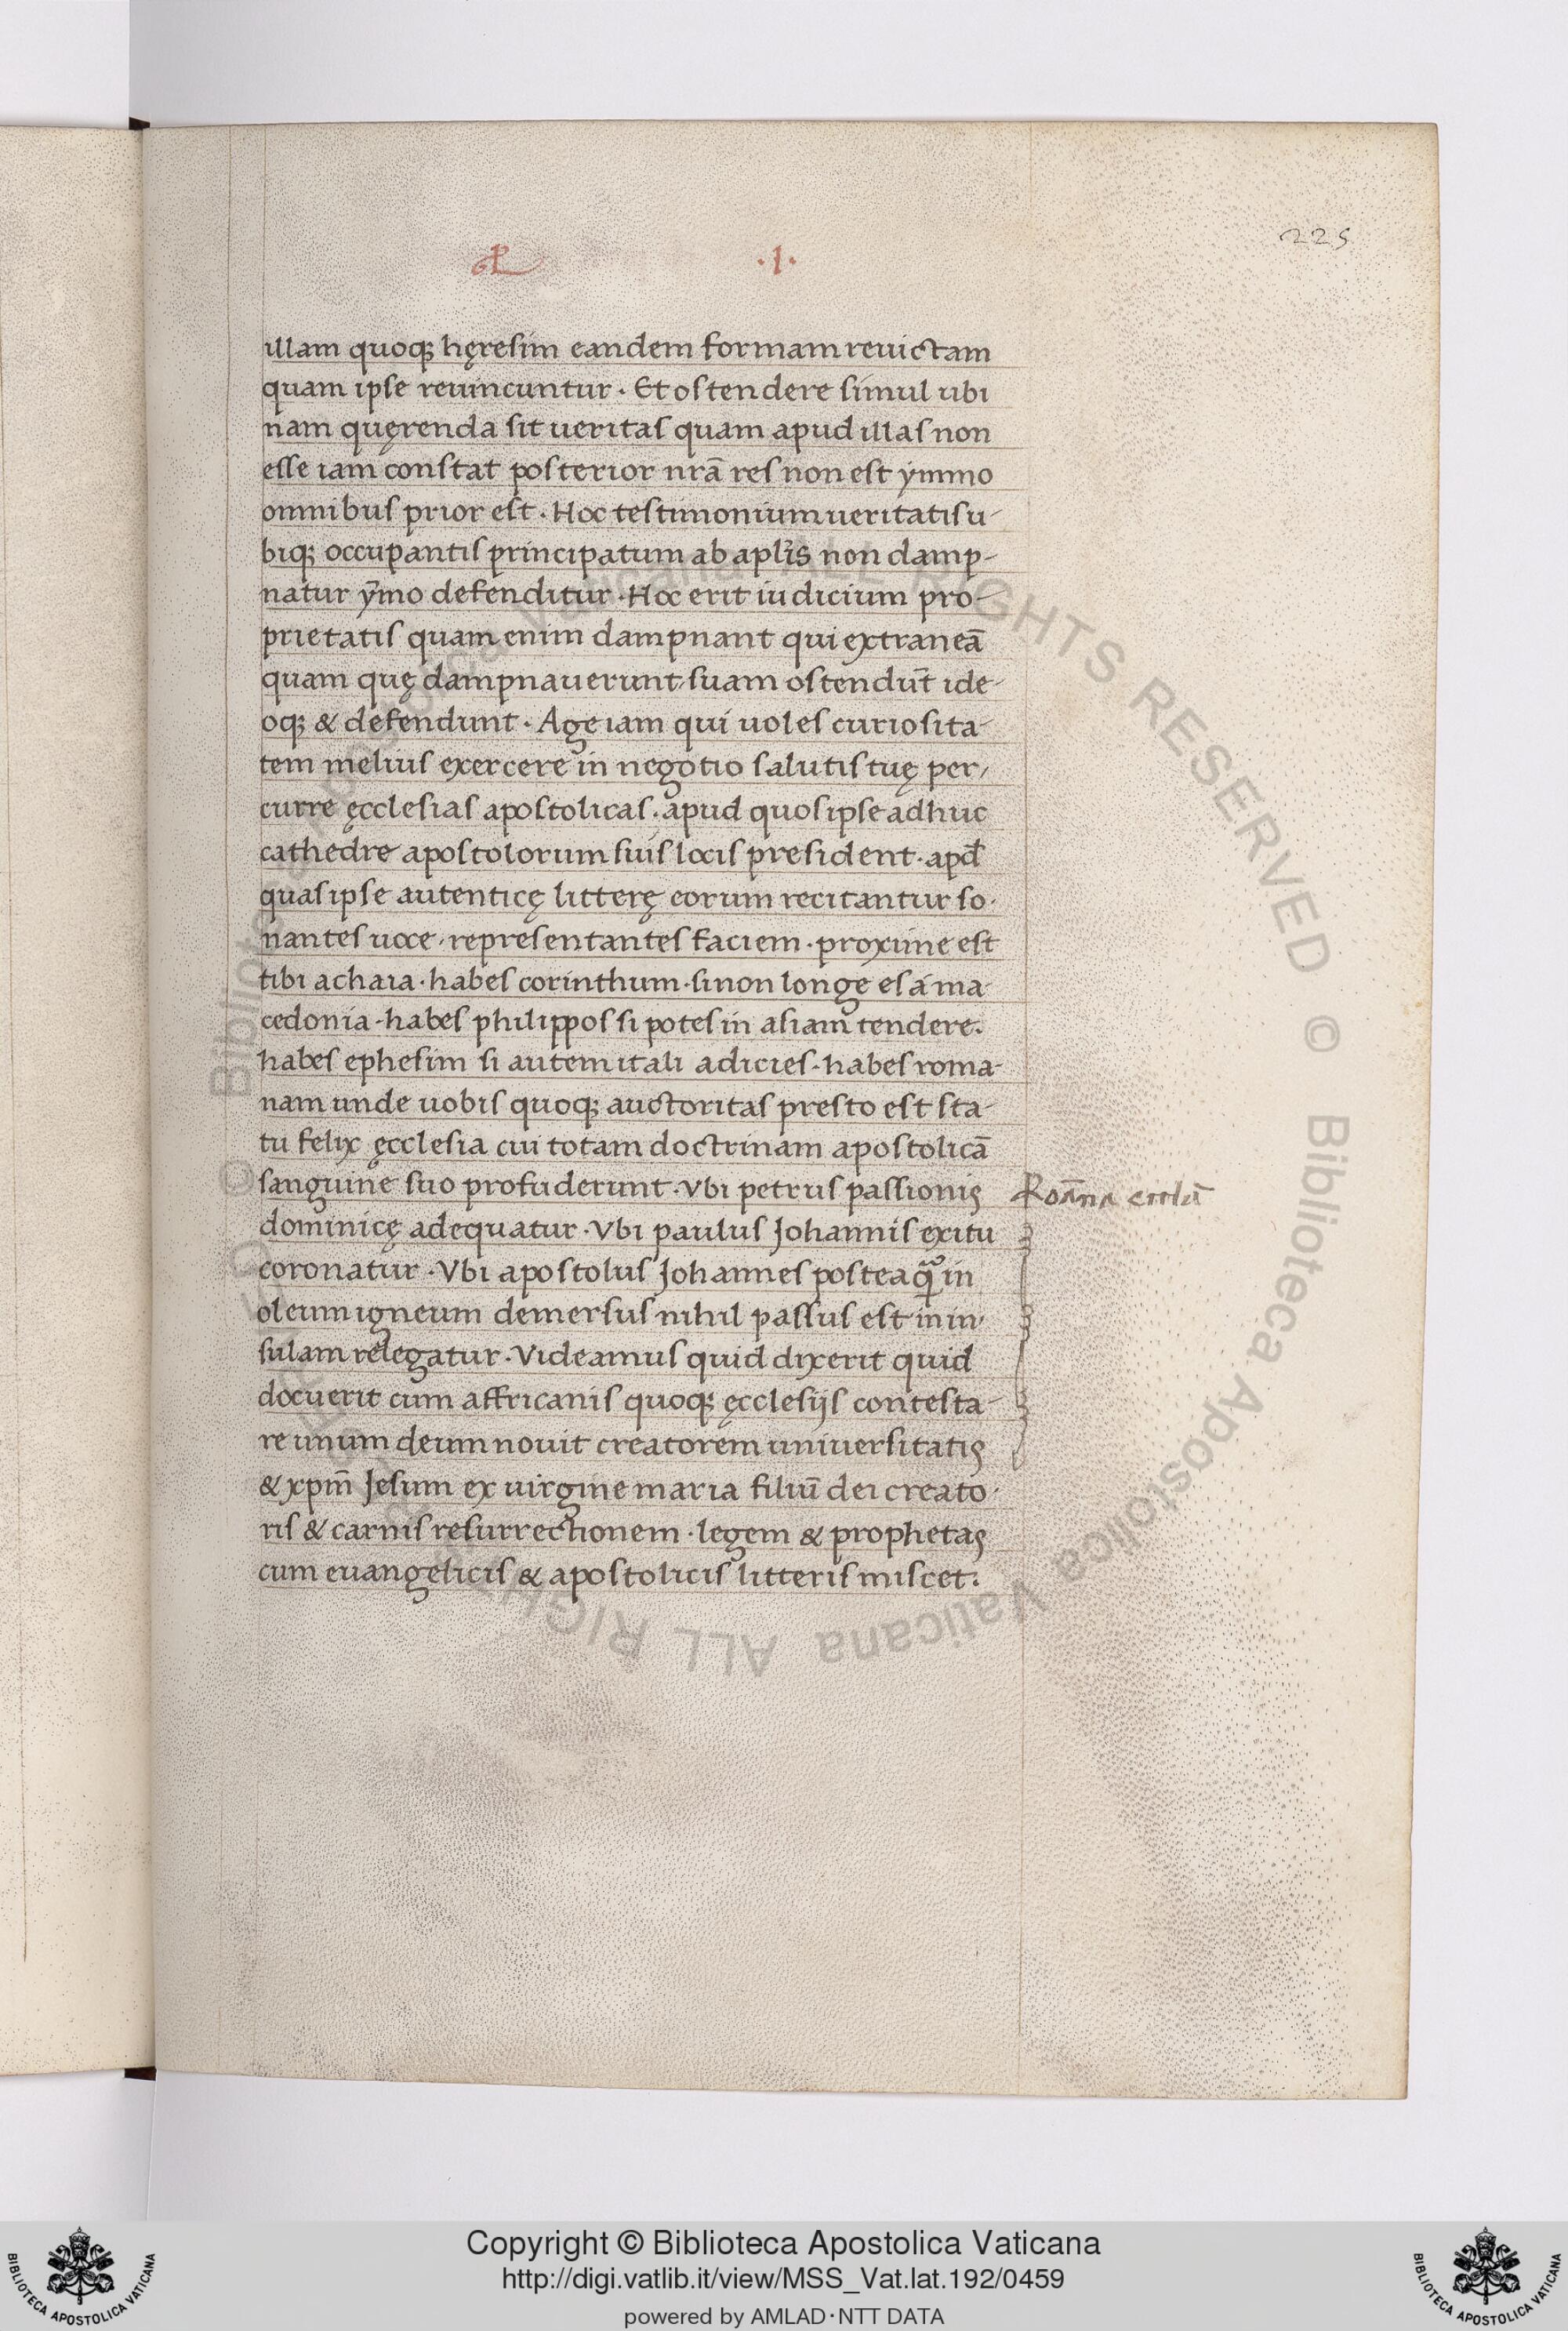 225
·I·
illam quoq; hęresim eandem formam reuictam
quam ipse reuincuntur · Et ostendere simul ubi
nam quęrenda sit ueritas quam apud illas non
esse iam constat posterior nrā res non est ymmo
omnibus prior est · Hoc testimonium ueritatis u-
biq; occupantis principatum ab aplīs non damp-
natur ȳmo defenditur · Hoc erit iudicium pro-
prietatis quam enim dampnant qui extraneā
quam quę dampnauerunt, suam ostendūt ide-
oq; & defendunt · Age iam qui uoles curiosita-
tem melius exercere in negotio salutis tuę per-
curre ęcclesias apostolicas · apud quos ipse adhuc
cathedre apostolorum suis locis president · apd̄
quas ipse autenticę litterę eorum recitantur so-
nantes uoce, representantes faciem · proxime est
tibi achaia · habes corinthum · si non longe es á ma-
cedonia · habes philippos si potes in asiam tendere ·
habes ephesim si autem itali adicies · habes roma-
nam unde uobis quoq; auctoritas presto est sta-
tu felix ęcclesia cui totam doctrinam apostolicā
sanguine suo profuderunt · Vbi petrus passionis
Roāna eccl̄a
dominicę adequatur · Vbi paulus Johannis exitu
coronatur · Vbi apostolus Johannes postea q̄ in
oleum igneum demersus nihil passus est in in-
sulam relegatur · Videamus quid dixerit quid
docuerit cum affricanis quoq; ęcclesijs contesta-
re unum deum nouit creatorem uniuersitatis
& xpm̄ Jesum ex uirgine maria filiū dei creato-
ris & carnis resurrectionem · legem & prophetas
cum euangelicis & apostolicis litteris miscet ·
© Biblioteca Apostolica Vaticana ALL RIGHTS RESERVED © Biblioteca Apostolica Vaticana ALL RIGHTS
Copyright © Biblioteca Apostolica Vaticana
http://digi.vatlib.it/view/MSS_Vat.lat.192/0459
powered by AMLAD·NTT DATA
BIBLIOTECA APOSTOLICA VATICANA
BIBLIOTECA APOSTOLICA VATICANA